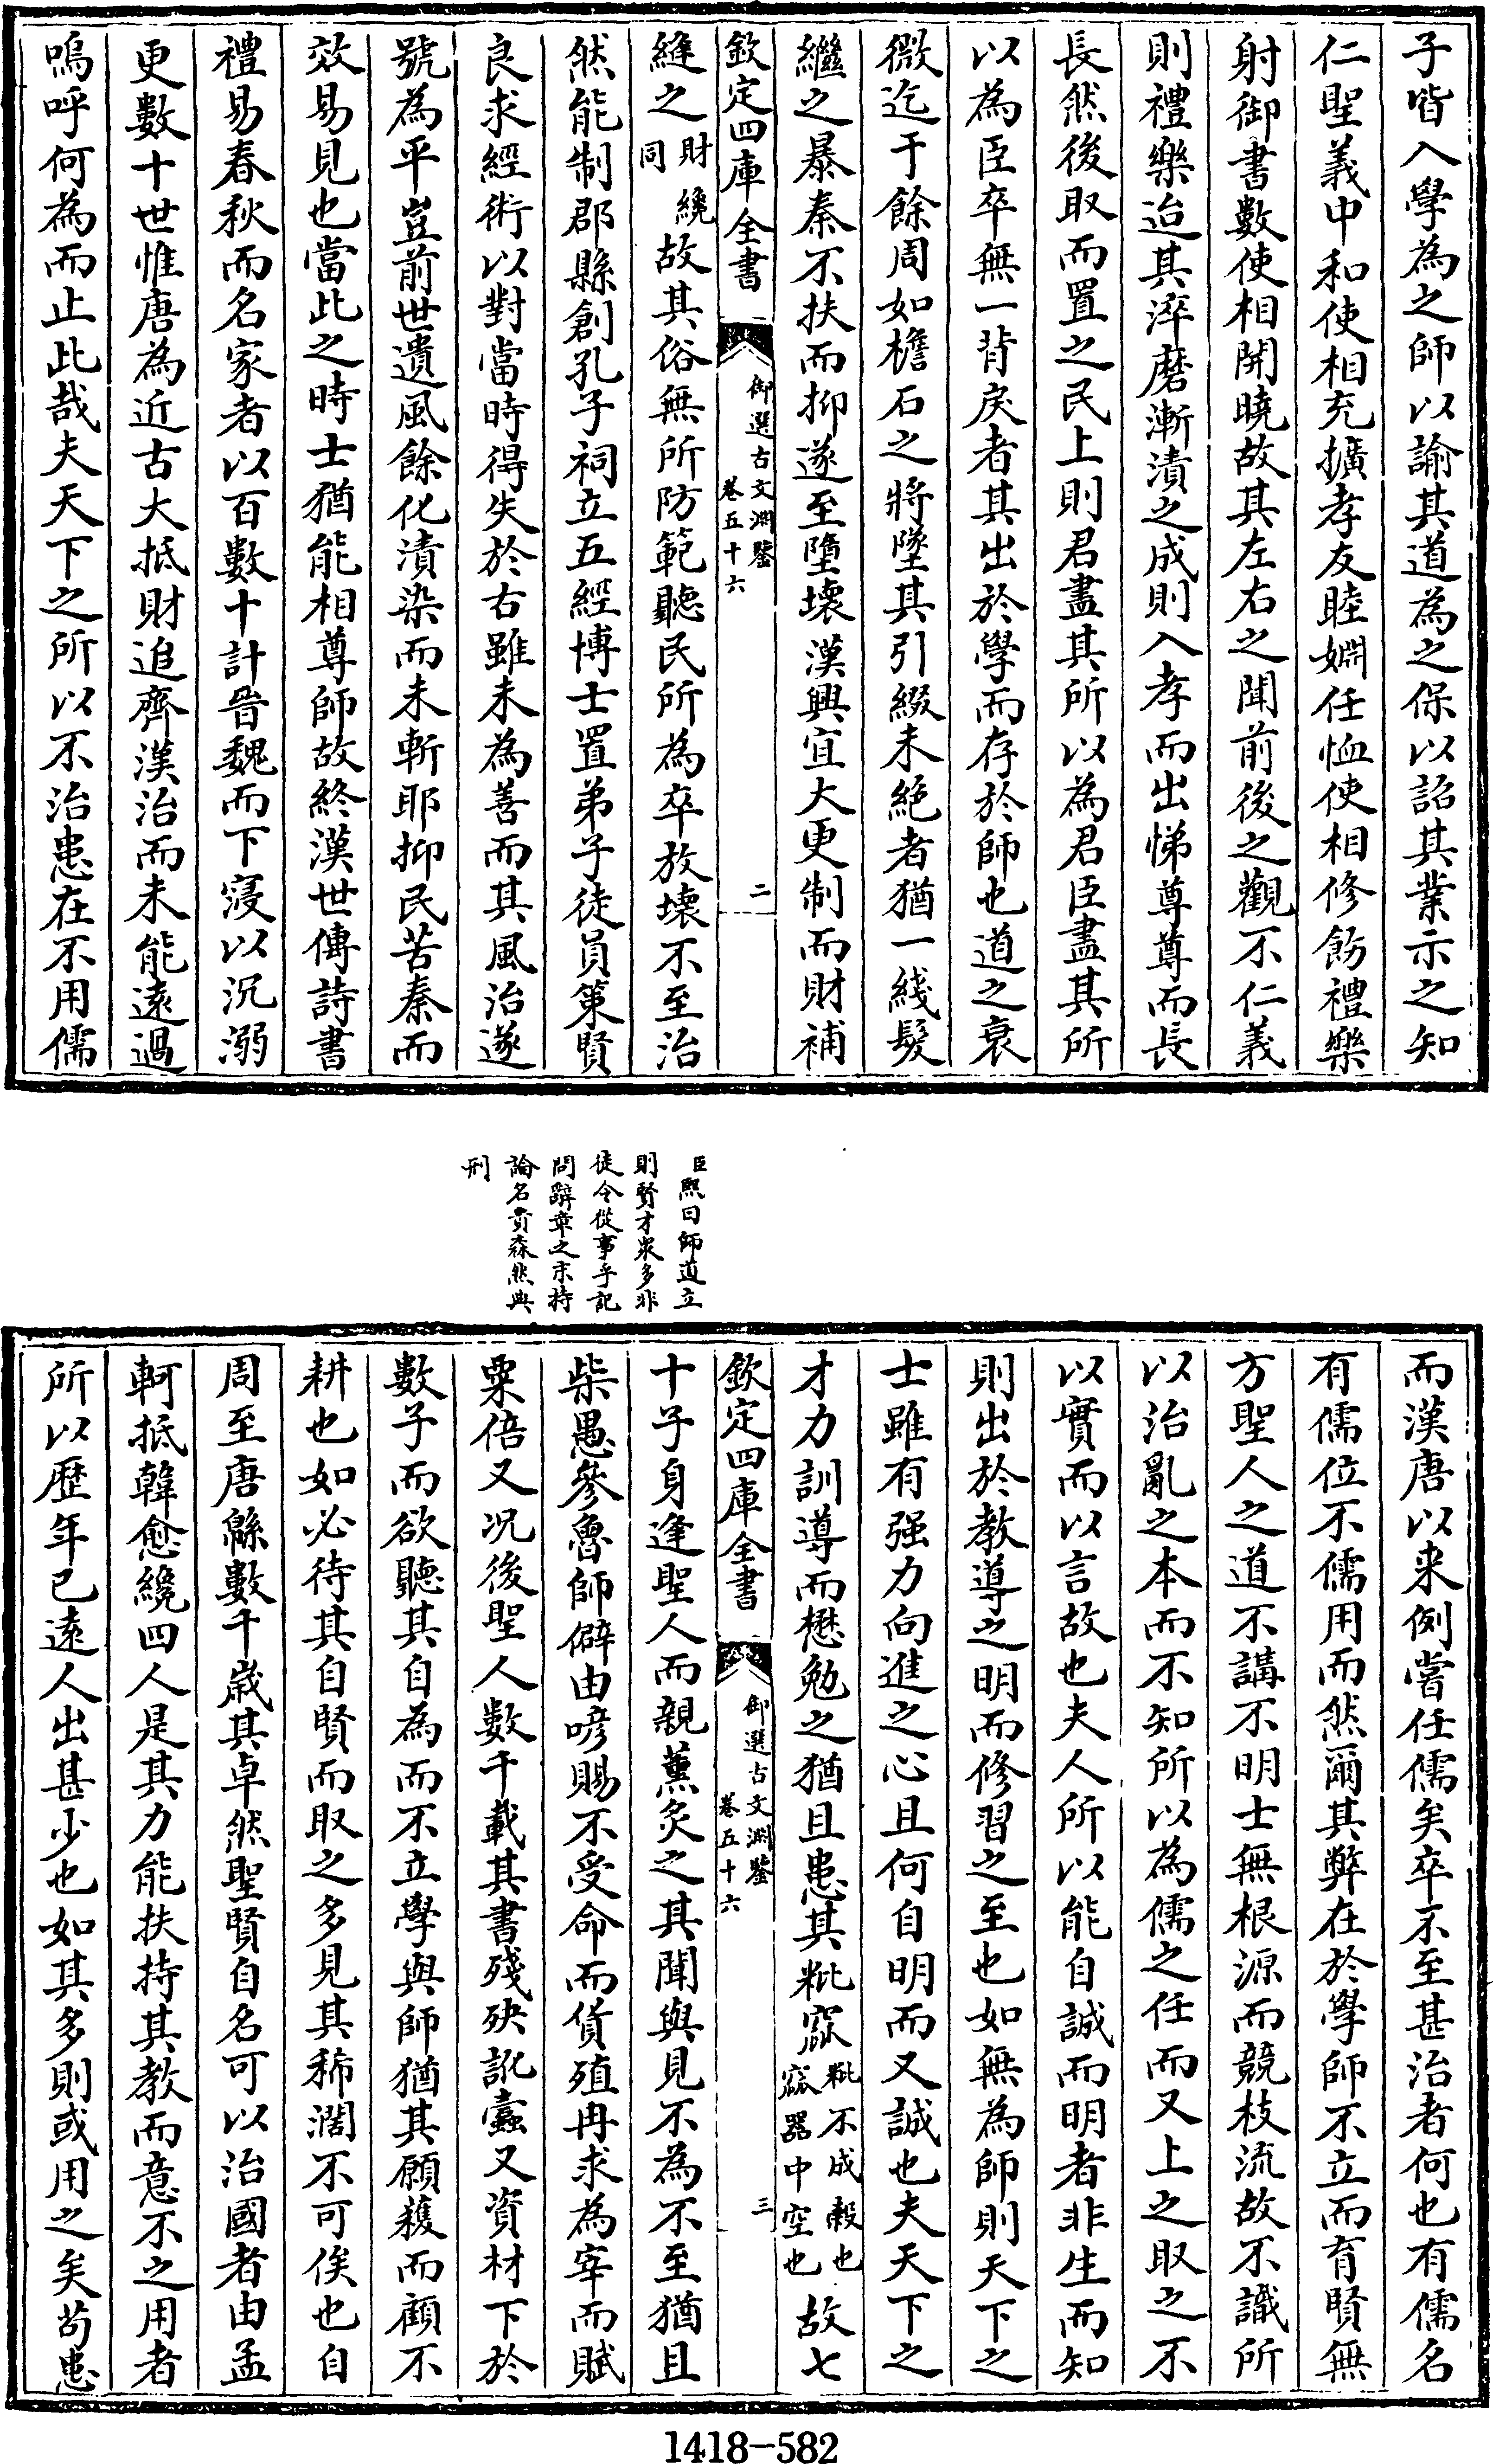 子皆入學為之師以諭其道為之保以詔其業示之知
仁聖義中和使相充擴孝友睦婣任恤使相修飭禮樂
射御書數使相開曉故其左右之聞前後之觀不仁義
則禮樂迨其淬磨漸漬之成則入孝而出悌尊尊而長
長然後取而置之民上則君盡其所以為君臣盡其所
以為臣卒無一背戾者其出於學而存於師也道之衰
微迄于餘周如檐石之將墜其引綴未絕者猶一綫髮
繼之暴秦不扶而抑遂至墮壞漢興宜大更制而財補
欽定四庫全書
御選古文淵鑒
卷五十六
二
縫之財纔同故其俗無所防範聽民所為卒放壞不至治
然能制郡縣創孔子祠立五經博士置弟子徒員策賢
良求經術以對當時得失於古雖未為善而其風治遂
號為平豈前世遺風餘化漬染而未斬耶抑民苦秦而
效易見也當此之時士猶能相尊師故終漢世傳詩書
禮易春秋而名家者以百數十計晉魏而下寖以沉溺
更數十世惟唐為近古大抵財追齊漢治而未能遠過
嗚呼何為而止此哉夫天下之所以不治患在不用儒
臣熙曰師道立
則賢才衆多非
徒令從事乎記
問辭章之末持
論名貴森然典
刑
而漢唐以来例嘗任儒矣卒不至甚治者何也有儒名
有儒位不儒用而然爾其弊在於學師不立而育賢無
方聖人之道不講不明士無根源而競枝流故不識所
以治亂之本而不知所以為儒之任而又上之取之不
以實而以言故也夫人所以能自誠而明者非生而知
則出於教導之明而修習之至也如無為師則天下之
士雖有强力向進之心且何自明而又誠也夫天下之
才力訓導而懋勉之猶且患其粃窳粃不成穀也窳器中空也故七
欽定四庫全書
御選古文淵鑒
卷五十六
三
十子身逢聖人而親薰炙之其聞與見不為不至猶且
柴愚參魯師僻由喭賜不受命而貨殖冉求為宰而賦
粟倍又况後聖人數千載其書殘殃訛蠹又資材下於
數子而欲聽其自為而不立學與師猶其願穫而顧不
耕也如必待其自賢而取之多見其稀濶不可俟也自
周至唐緜數千歲其卓然聖賢自名可以治國者由孟
軻抵韓愈纔四人是其力能扶持其教而意不之用者
所以歴年已遠人出甚少也如其多則或用之矣苟患
1418-582